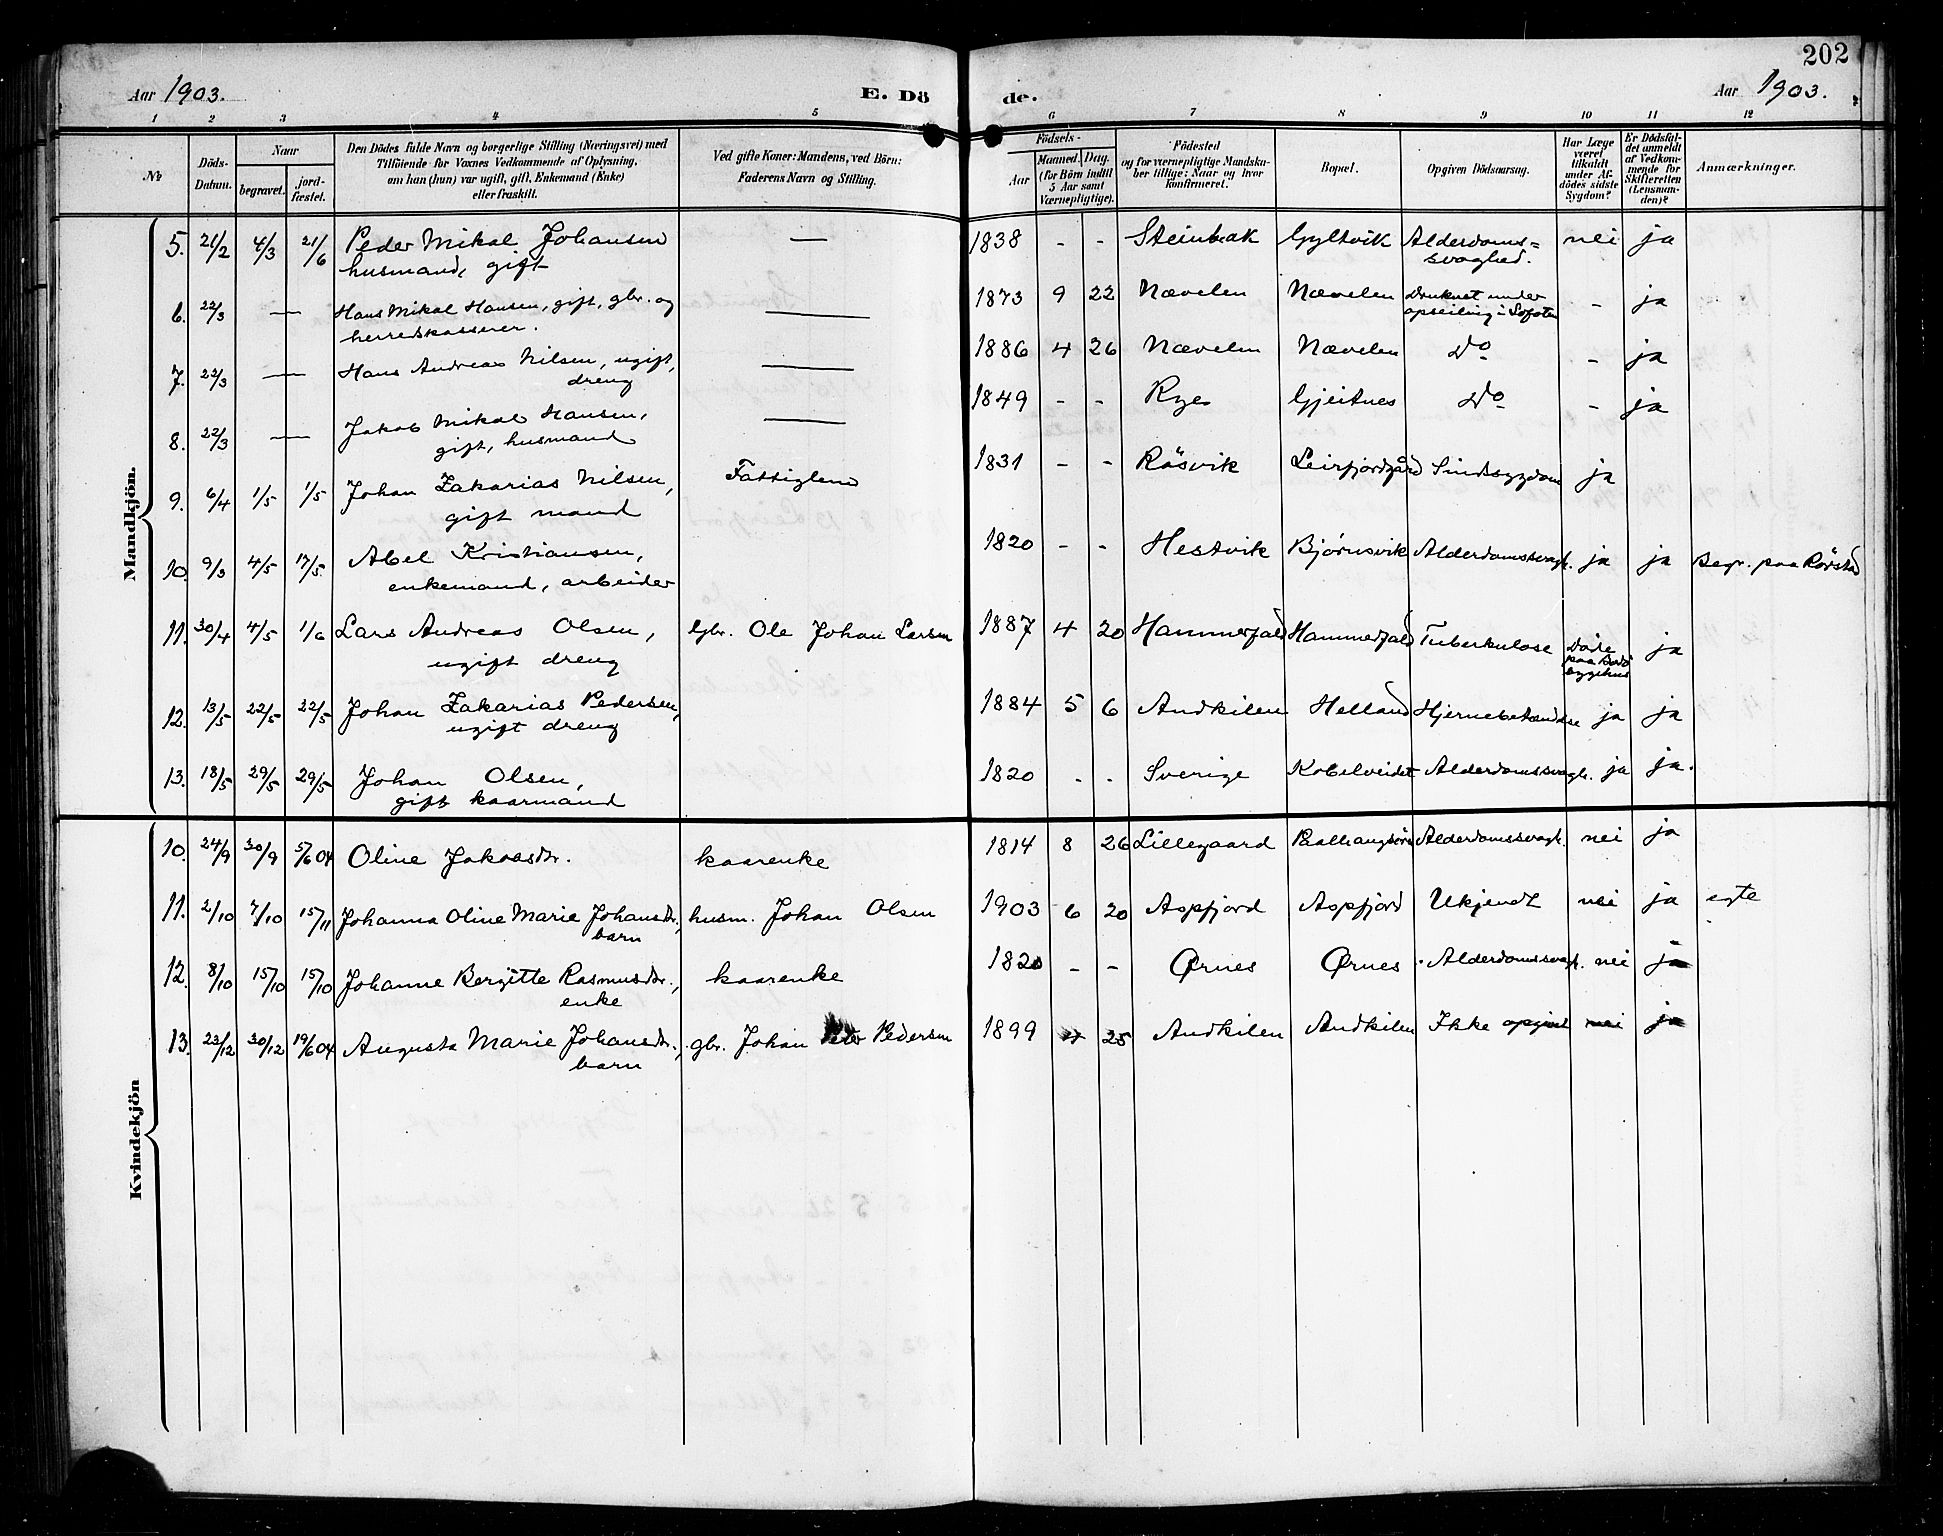 202
Aar 1903. E. Dö de. Aar 1903.
1 2 3 4 5 6 7 8 9 10 11 12
№
Döds-Datum.
Naar
begravet.
jord-fæstet.
Den Dödes fulde Navn og borgerlige Stilling (Næringsvei) med
Tilföiende for Voxnes Vedkommende af Oplysning,
om han (hun) var ugift, gift, Enkemand (Enke)
eller fraskilt.
Ved gifte Koner: Mandens, ved Börn:
Faderens Navn og Stilling.
Födsels-
Aar
Maaned. Dag.
(for Börn indtil
5 Aar samt
Værnepligtige).
Födested
og for værnepligtige Mandska-
ber tillige: Naar og hvor
konfirmeret.
Bopæl.
Opgiven Dödsaarsag.
Har Læge
været
tilkaldt
under Af-
dödes sidste
Sygdom?
Er Dödsfal-
det anmeldt
af Vedkom-
mende for
Skifteretten
(Lensman-
den)?
Anmærkninger.
Mandkjön.
5. 21/2 4/3 21/6 Peder Mikal Johansen — 1838 - - Steinbak Gyltvik Alderdoms= nei ja
husmand, gift svaghed.
6. 22/3 — Hans Mikal Hansen, gift, gbr. og — 1873 9 22 Nævelen Nævelen Druknet under - ja
herredskasserer. opseiling i Lofoten
7. 22/3 — Hans Andreas Nilsen, ugift, — 1886 4 26 Nævelen Nævelen Do - ja
dreng
8. 22/3 — Jakob Mikal Hansen, — 1849 - - Ryes Gjeitnes Do - ja
gift, husmand
9. 6/4 1/5 1/5 Johan Zakarias Nilsen, Fattiglem 1831 - - Røsvik Leirfjordgård Sindssygdom ja
gift mand
10. 9/3 4/5 17/5 Abel Kristiansen, 1820 - - Hestvik Bjørnsvik Alderdomssvagh. ja ja Begr. paa Rørstad
enkemand, arbeider
11. 30/4 4/5 1/6 Lars Andreas Olsen, Gbr. Ole Johan Larsen 1887 4 20 Hammerfald Hammerfald Tuberkulose Døde ja
ugift dreng paa Bodø
sygehus
12. 13/5 22/5 22/5 Johan Zakarias Pedersen, 1884 5 6 Andkilen Helland Hjernebetændelse ja ja
ugift dreng
13. 18/5 29/5 29/5 Johan Olsen, 1820 - - Sverige Kobelveidet Alderdomssvagh. ja ja.
gift kaarmand
Kvindekjön
10. 24/9 30/9 5/6 04 Oline Jakobsdr. kaarenke 1814 8 26 Lillegaard Alderdomssvagh. nei ja
11. 2/10 7/10 15/11 Johanna Oline Marie Johansdr., husm. Johan Olsen 1903 6 20 Aspfjord Aspfjord Ukjendt nei ja egte
barn
12. 8/10 15/10 15/10 Johanne Bergitte Rasmusdr., kaarenke 1820 - - Ørnes Ørnes Alderdomssvagh. nei ja
enke
13. 23/12 30/12 19/6 04 Augusta Marie Johansdr., gbr. Johan Peter Pedersen 1899 25 Andkilen Andkilen Ikke opgivet nei ja
barn